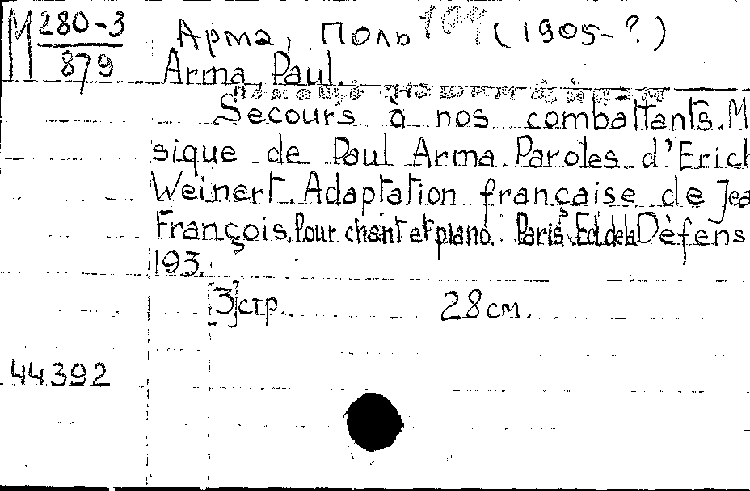 М 280-3 Арма, Поль (1905-?)
879 Arma, Paul.
Secours à nos combattants. M
sique de Paul Arma. Paroles d'Erich
Weinert. Adaptation française de Jea
François. Pour chant et piano. Paris. Ed. de la Défens
193.
[3] стр. 28 см.
44392